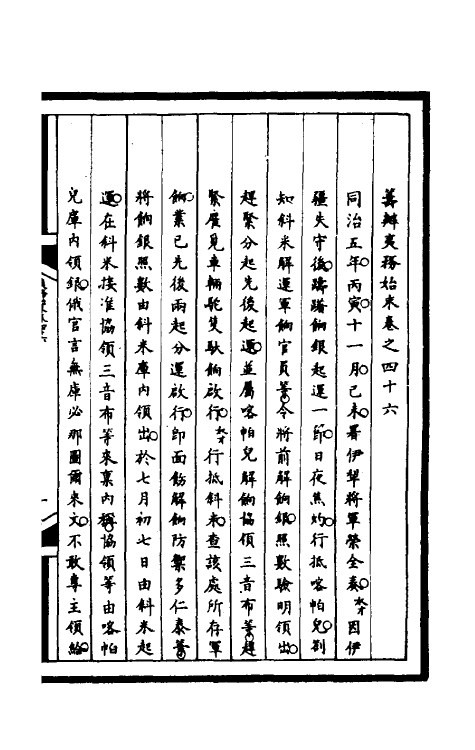 籌辦夷務始末卷之四十六
同治五年丙寅十一月己未署伊犂將軍榮全奏奴才因伊
疆失守後躊躇餉銀起運一節日夜焦灼行抵喀帕兒劄
知斜米解運軍餉官員等令將前解餉銀照數驗明領出
趕緊分起先後起運並屬喀帕兒解餉協領三音布等趕
緊雇覓車輛駝隻馱餉啟行奴才行抵斜米查該處所存軍
餉業已先後兩起分運啟行即面飭解餉防禦多仁泰等
將餉銀照數由斜米庫內領出於七月初七日由斜米起
運在斜米接准協領三音布等來稟內稱協領等由喀帕
兒庫內領銀俄官言無庫必那圖爾來文不敢專主領給